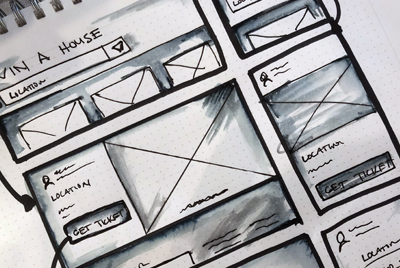 VIN A HOUSE
LOCATION
LOCATION
GET TICKET
LOCATION
GET TICKET
LOCATION